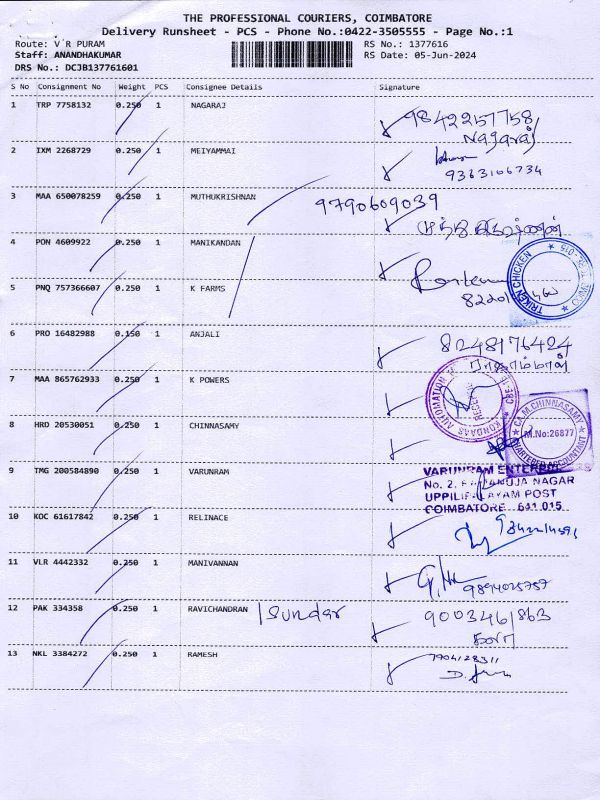 THE PROFESSIONAL COURIERS, COIMBATORE
Delivery Runsheet - PCS - Phone No.:0422-3505555 - Page No.:1
Route: V R PURAM
RS No.: 1377616
Staff: ANANDHAKUMAR
RS Date: 05-Jun-2024
DRS No.: DCJB137761601
S No Consignment No Weight PCS Consignee Details Signature
1 TRP 7758132 0.250 1 NAGARAJ 9842257758
Nagaraj
2 IXM 2268729 0.250 1 MEIYAMMAI
9363106734
3 MAA 650078259 0.250 1 MUTHUKRISHNAN 9790609039
4 PON 4609922 0.250 1 MANIKANDAN
TRIKEN CHICKEN
5 PNQ 757366607 0.250 1 K FARMS
6 PRO 16482988 0.150 1 ANJALI 8248176424
7 MAA 865762933 0.250 1 K POWERS
KONDAAS AUTOMATION
8 HRD 20530051 0.250 1 CHINNASAMY
CA.M.CHINNASAMY
M.No:26877
CHARTERED ACCOUNTANT
9 TMG 200584890 0.250 1 VARUNRAM
VARUNRAM ENTERPRISE
No. 2, RAMANUJA NAGAR
UPPILIPALAYAM POST
COIMBATORE 641 015
10 KOC 61617842 0.250 1 RELINACE
11 VLR 4442332 0.250 1 MANIVANNAN
9894025757
12 PAK 334358 0.250 1 RAVICHANDRAN / Sundar 9003461863
13 NKL 3384272 0.250 1 RAMESH 7904128311